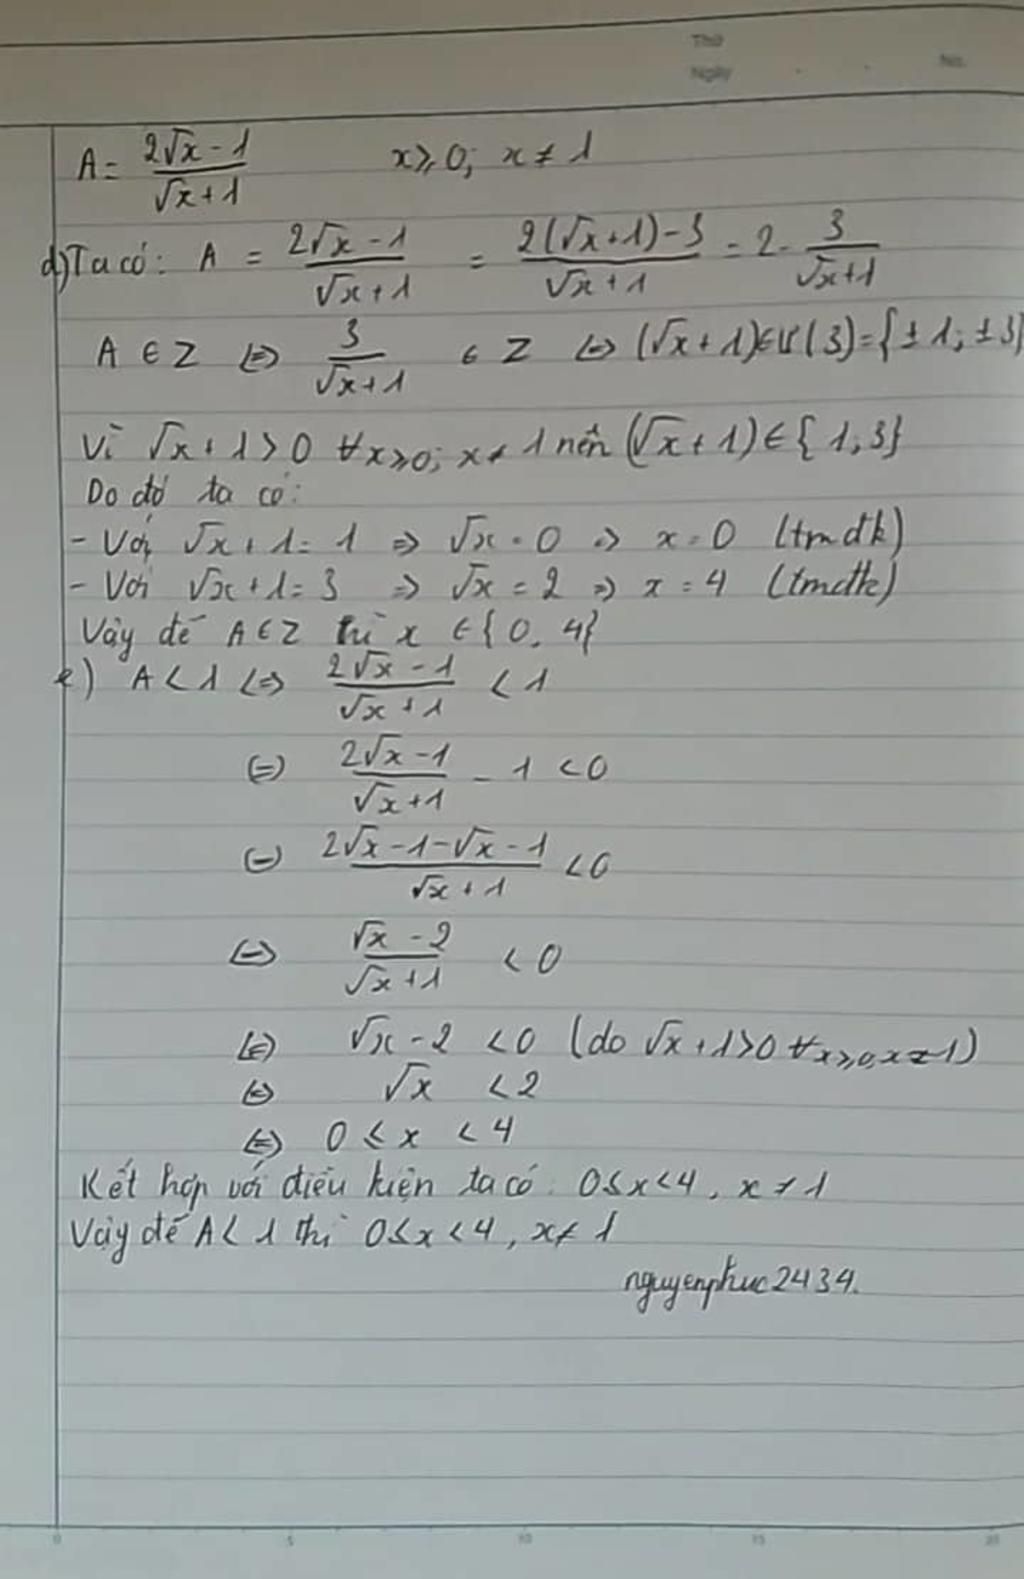 Thứ
Ngày
No.
A = (2√x - 1)/(√x + 1) x ⩾ 0; x ≠ 1
d) Ta có: A = (2√x - 1)/(√x + 1) = (2(√x + 1) - 3)/(√x + 1) = 2 - 3/(√x + 1)
A ∈ Z ⇔ 3/(√x + 1) ∈ Z ⇔ (√x + 1) ∈ Ư(3) = {±1; ±3}
Vì √x + 1 > 0 ∀x ⩾ 0; x ≠ 1 nên (√x + 1) ∈ {1; 3}
Do đó ta có:
- Với √x + 1 = 1 ⇒ √x = 0 ⇒ x = 0 (tmđk)
- Với √x + 1 = 3 ⇒ √x = 2 ⇒ x = 4 (tmđk)
Vậy để A ∈ Z thì x ∈ {0, 4}
e) A < 1 ⇔ (2√x - 1)/(√x + 1) < 1
⇔ (2√x - 1)/(√x + 1) - 1 < 0
⇔ (2√x - 1 - √x - 1)/(√x + 1) < 0
⇔ (√x - 2)/(√x + 1) < 0
⇔ √x - 2 < 0 (do √x + 1 > 0 ∀x ⩾ 0, x ≠ 1)
⇔ √x < 2
⇔ 0 ≤ x < 4
Kết hợp với điều kiện ta có: 0 ≤ x < 4, x ≠ 1
Vậy để A < 1 thì 0 ≤ x < 4, x ≠ 1
nguyenphuc2434.
0 5 10 15 20